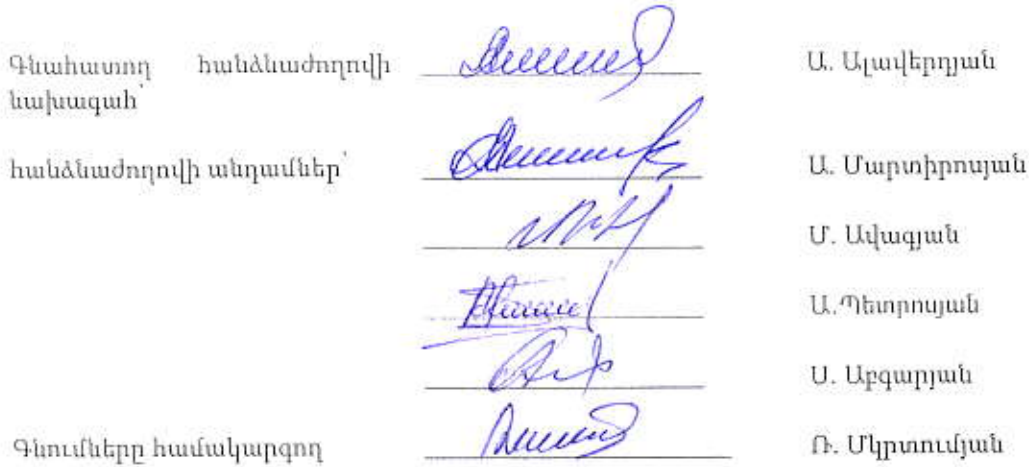 Գնահատող հանձնաժողովի Ա. Ալավերդյան
նախագահ՝
հանձնաժողովի անդամներ՝ Ա. Մարտիրոսյան
Մ. Ավագյան
Ա.Պետրոսյան
Ս. Աբգարյան
Գնումները համակարգող Ռ. Մկրտումյան